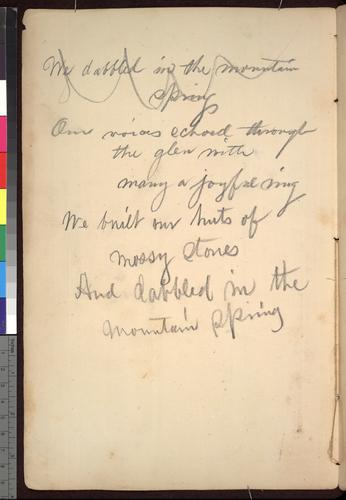 We dabbled in the mountain
spring
Our voices echoed through
the glen with
many a joyful ring
We built our huts of
mossy stones
And dabbled in the
mountain spring